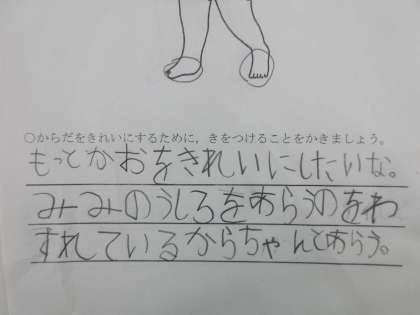 ○からだをきれいにするために，きをつけることをかきましょう。
もっとかおをきれいにしたいな。
みみのうしろをあらうのをわ
すれているからちゃんとあらう。